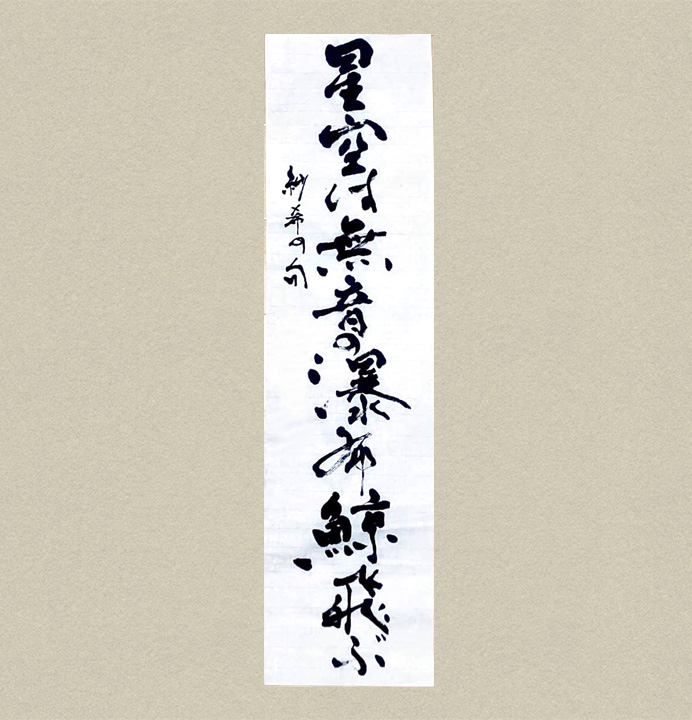 星空は無音の瀑布鯨飛ぶ
紗希の句